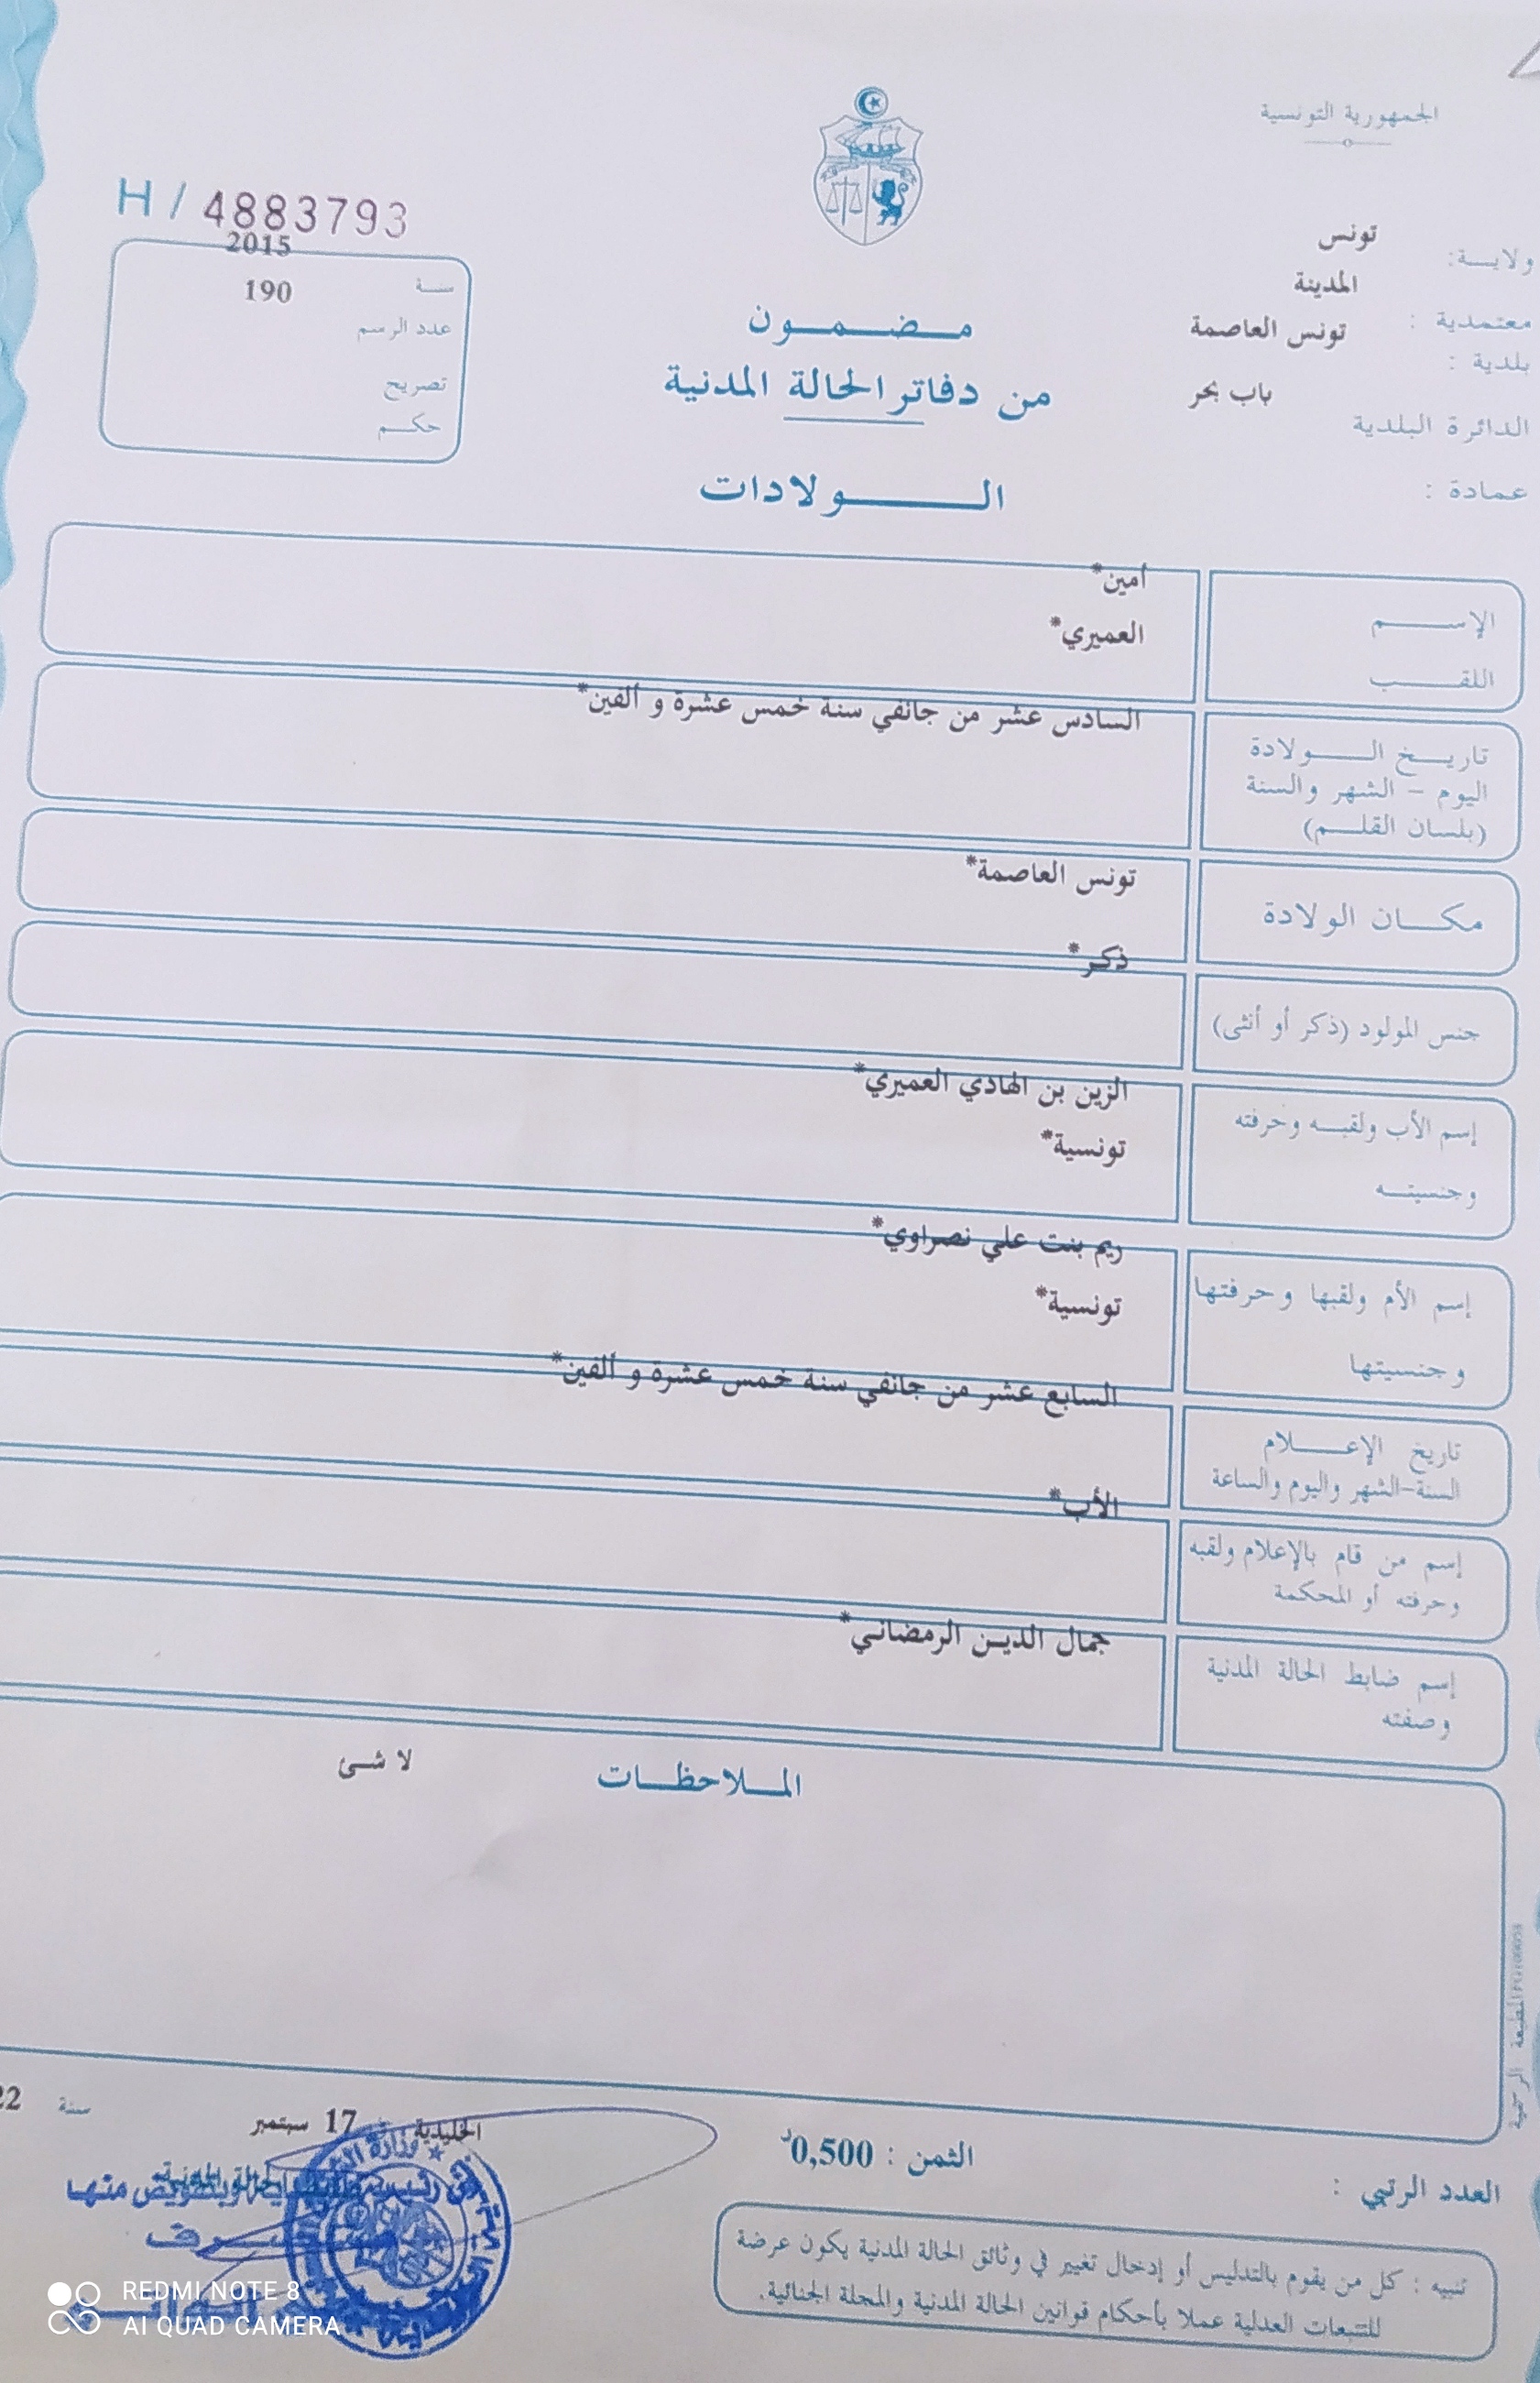 الجمهورية التونسية
ولاية: تونس
معتمدية : المدينة
بلدية : تونس العاصمة
الدائرة البلدية باب بحر
عمادة :
مضمون
من دفاتر الحالة المدنية
الولادات
H / 4883793
سنة 2015
عدد الرسم 190
تصريح
حكم
الإسم أمين*
اللقب العميري*
تاريخ الولادة السادس عشر من جانفي سنة خمس عشرة و ألفين*
اليوم – الشهر والسنة
(بلسان القلم)
مكان الولادة تونس العاصمة*
جنس المولود (ذكر أو أنثى) ذكر*
إسم الأب ولقبه وحرفته الزين بن الهادي العميري*
وجنسيته تونسية*
إسم الأم ولقبها وحرفتها ريم بنت علي نصراوي*
وجنسيتها تونسية*
تاريخ الإعلام السابع عشر من جانفي سنة خمس عشرة و ألفين*
السنة-الشهر واليوم والساعة
إسم من قام بالإعلام ولقبه الأب*
وحرفته أو المحكمة
إسم ضابط الحالة المدنية جمال الدين الرمضاني*
وصفته
الملاحظات لا شئ
الخليدية 17 سبتمبر سنة 22
العدد الرتبي :
الثمن : 0,500د
تنبيه : كل من يقوم بالتدليس أو إدخال تغيير في وثائق الحالة المدنية يكون عرضة
للتتبعات العدلية عملا بأحكام قوانين الحالة المدنية والمجلة الجنائية.
المطبعة الرسمية
REDMI NOTE 8
AI QUAD CAMERA